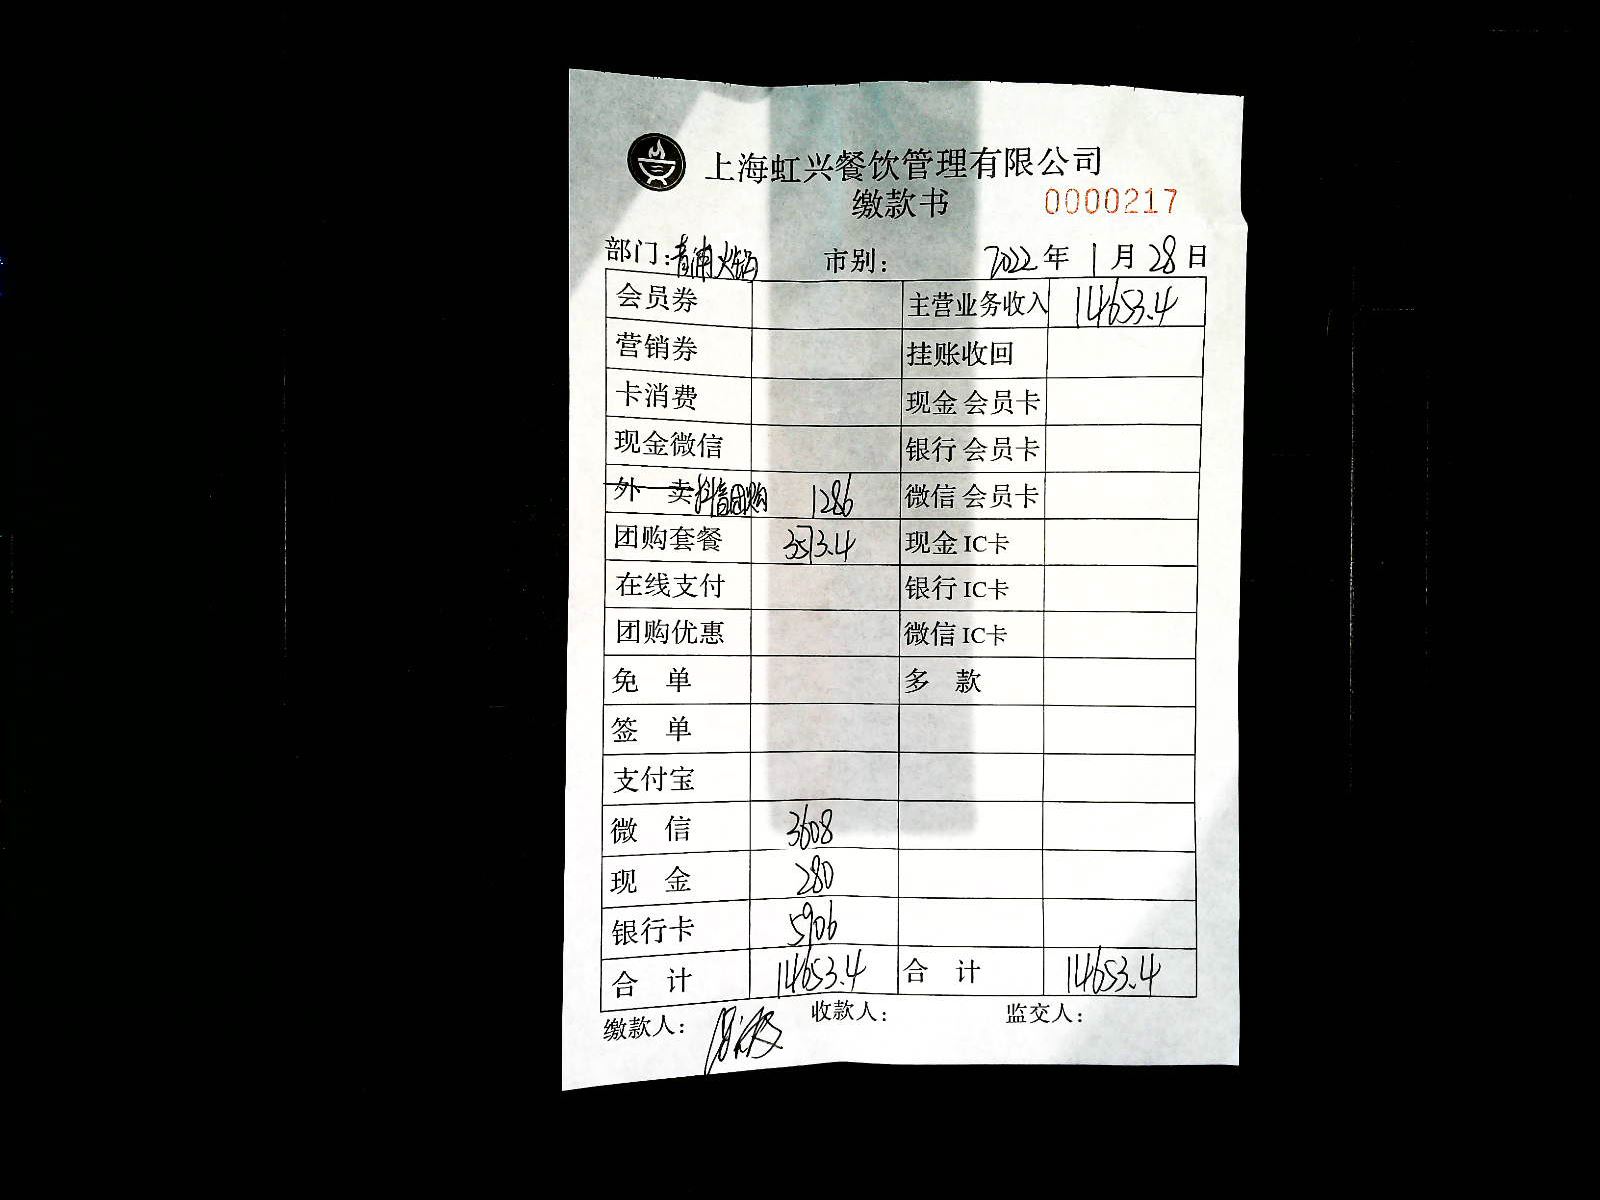 上海虹兴餐饮管理有限公司
缴款书 0000217
部门：青浦火锅 市别： 2022年1月28日
会员券 主营业务收入 14653.4
营销券 挂账收回
卡消费 现金 会员卡
现金微信 银行 会员卡
外 卖 抖音团购 1286 微信 会员卡
团购套餐 3573.4 现金 IC卡
在线支付 银行 IC卡
团购优惠 微信 IC卡
免 单 多 款
签 单
支付宝
微 信 3608
现 金 280
银行卡 5906
合 计 14653.4 合 计 14653.4
缴款人： 收款人： 监交人：